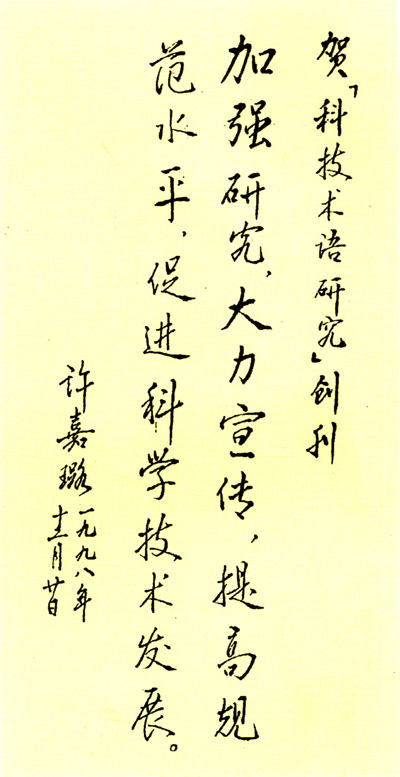 贺「科技术语研究」创刊
加强研究,大力宣传,提高规
范水平,促进科学技术发展。
许嘉璐一九九八年
十二月廿日